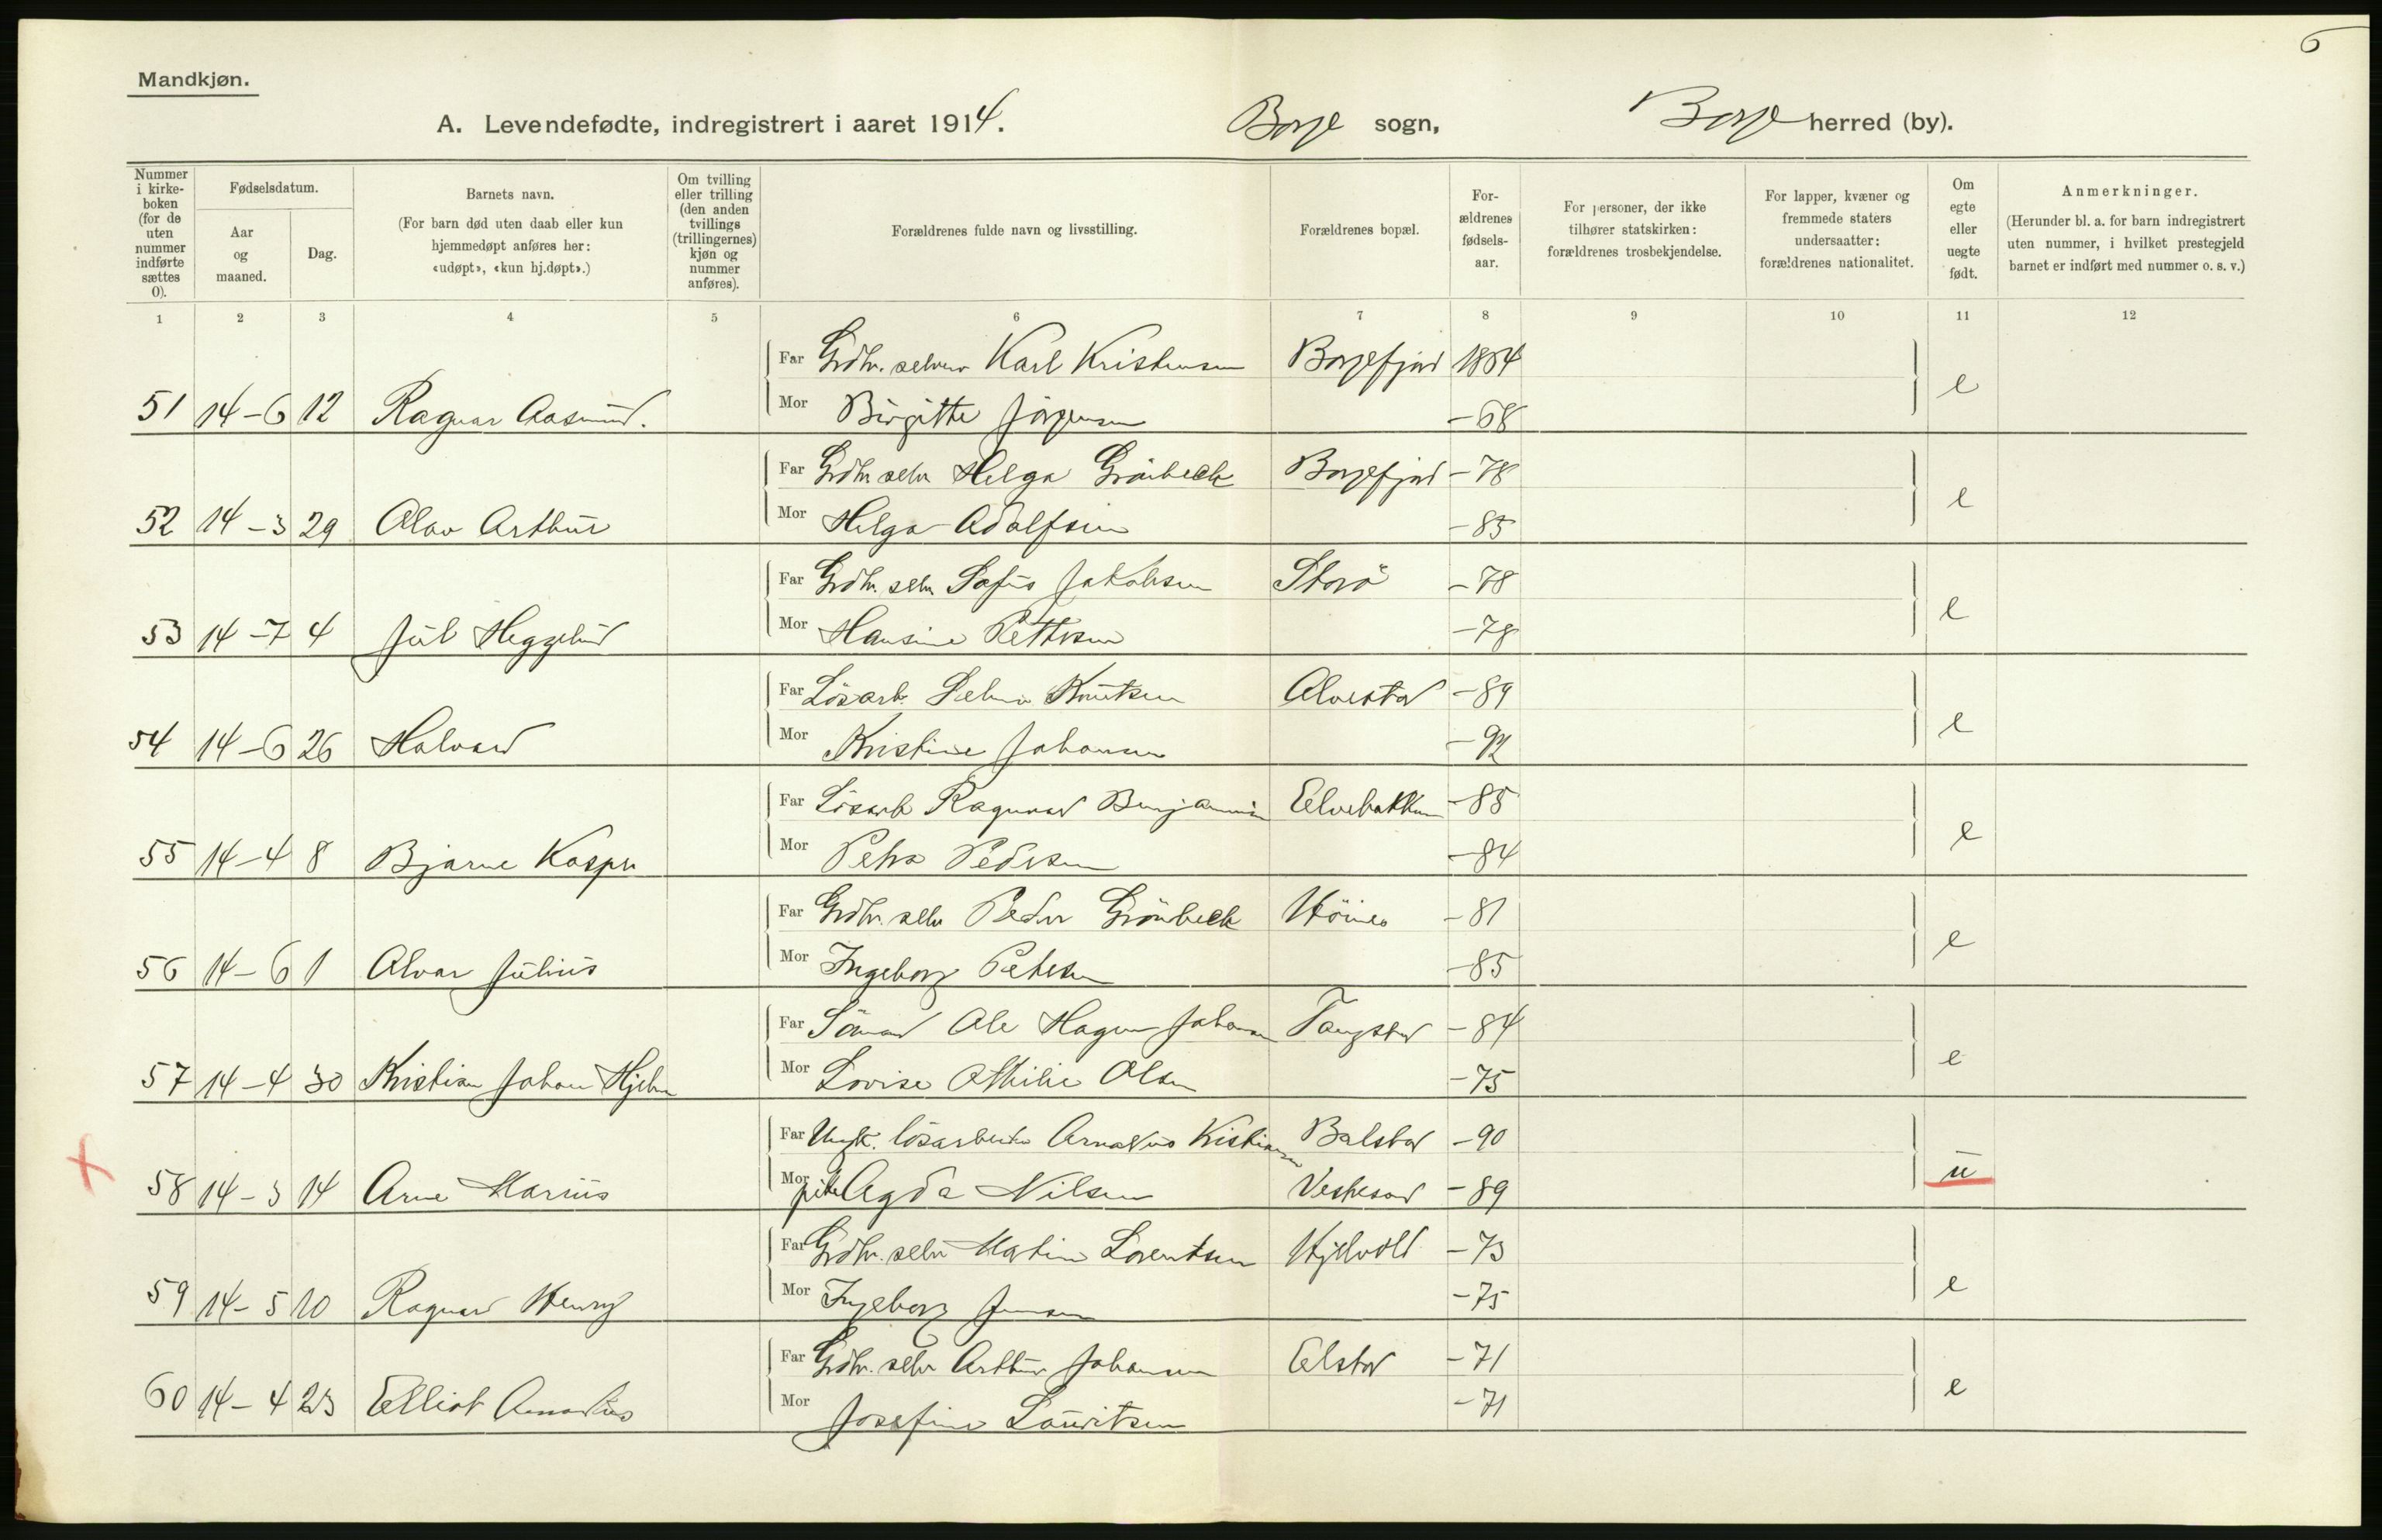 6
Mandkjøn.
A. Levendefødte, indregistrert i aaret 1914. Borge sogn, Borge herred (by).
Nummer i kirkeboken (for de uten nummer indførte sættes 0).
Fødselsdatum.
Aar og maaned.
Dag.
Barnets navn.
(For barn død uten daab eller kun hjemmedøpt anføres her: «udøpt», «kun hj.døpt».)
Om tvilling eller trilling (den anden tvillings (trillingernes) kjøn og nummer anføres).
Forældrenes fulde navn og livsstilling.
Forældrenes bopæl.
Forældrenes fødselsaar.
For personer, der ikke tilhører statskirken: forældrenes trosbekjendelse.
For lapper, kvæner og fremmede staters undersaatter: forældrenes nationalitet.
Om egte eller uegte født.
Anmerkninger.
(Herunder bl. a. for barn indregistrert uten nummer, i hvilket prestegjeld barnet er indført med nummer o. s. v.)
1 2 3 4 5 6 7 8 9 10 11 12
Far Grdbr. selveier Karl Kristensen Borgefjord 1864
51 14-6 12 Ragnar Aasmund. Mor Birgitte Jörgensen -68 e
Far Grdbr selv Helge Grönbeck Borgefjord -78
52 14-3 29 Olav Arthur Mor Helga Adolfsen -85 e
Far Grdbr. selv Sofus Jakobsen Storö -78
53 14-7 4 Jul Heggelund Mor Hansine Pettersen -78 e
Far Lösarb. Selmer Knutsen Alvestad -89
54 14-6 26 Halvard Mor Kristine Johansen -92 e
Far Lösarb Ragnvald Benjaminsen Elvebakken -85
55 14-4 8 Bjarne Kasper Mor Petra Pedersen -84 e
Far Grdbr. selv Peder Grönbeck Höines -81
56 14-6 1 Alvar Julius Mor Ingeborg Petersen -85 e
Far Sömand Ole Hagen Johansen Tangstad -84
57 14-4 30 Kristian Johan Hjelm Mor Lovise Othilie Olsen -75 e
Far Ungk. lösarbeider Arnoldus Kristiansen Balstad -90
58 14-3 14 Arne Marius Mor pike Agda Nilsen Vestresand -89 u
Far Grdbr. selv Martin Lorentsen Hjelvold -73
59 14-5 10 Ragnar Henry Mor Ingeborg Jensen -75 e
Far Grdbr. selv Arthur Johansen Elstad -71
60 14-4 23 Elliot Amandus Mor Josefine Lauritsen -71 e